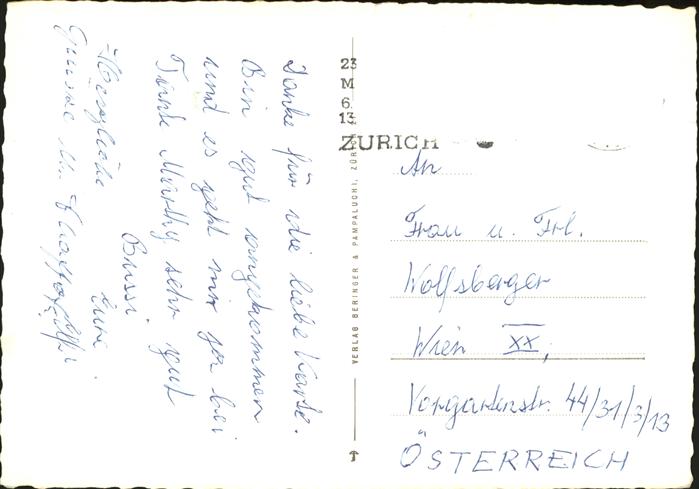 Danke für die liebe Karte.
Bin gut angekommen
und es geht mir ja bei
Tante Marthy sehr gut
Bussi
Eure
Herzliche
Grüsse
23
M
6.
13
ZURICH
VERLAG BERINGER & PAMPALUCHI, ZÜRICH
An
Frau u. Frl.
Wolfsberger
Wien XX,
Vorgartenstr. 44/31/3/13
ÖSTERREICH